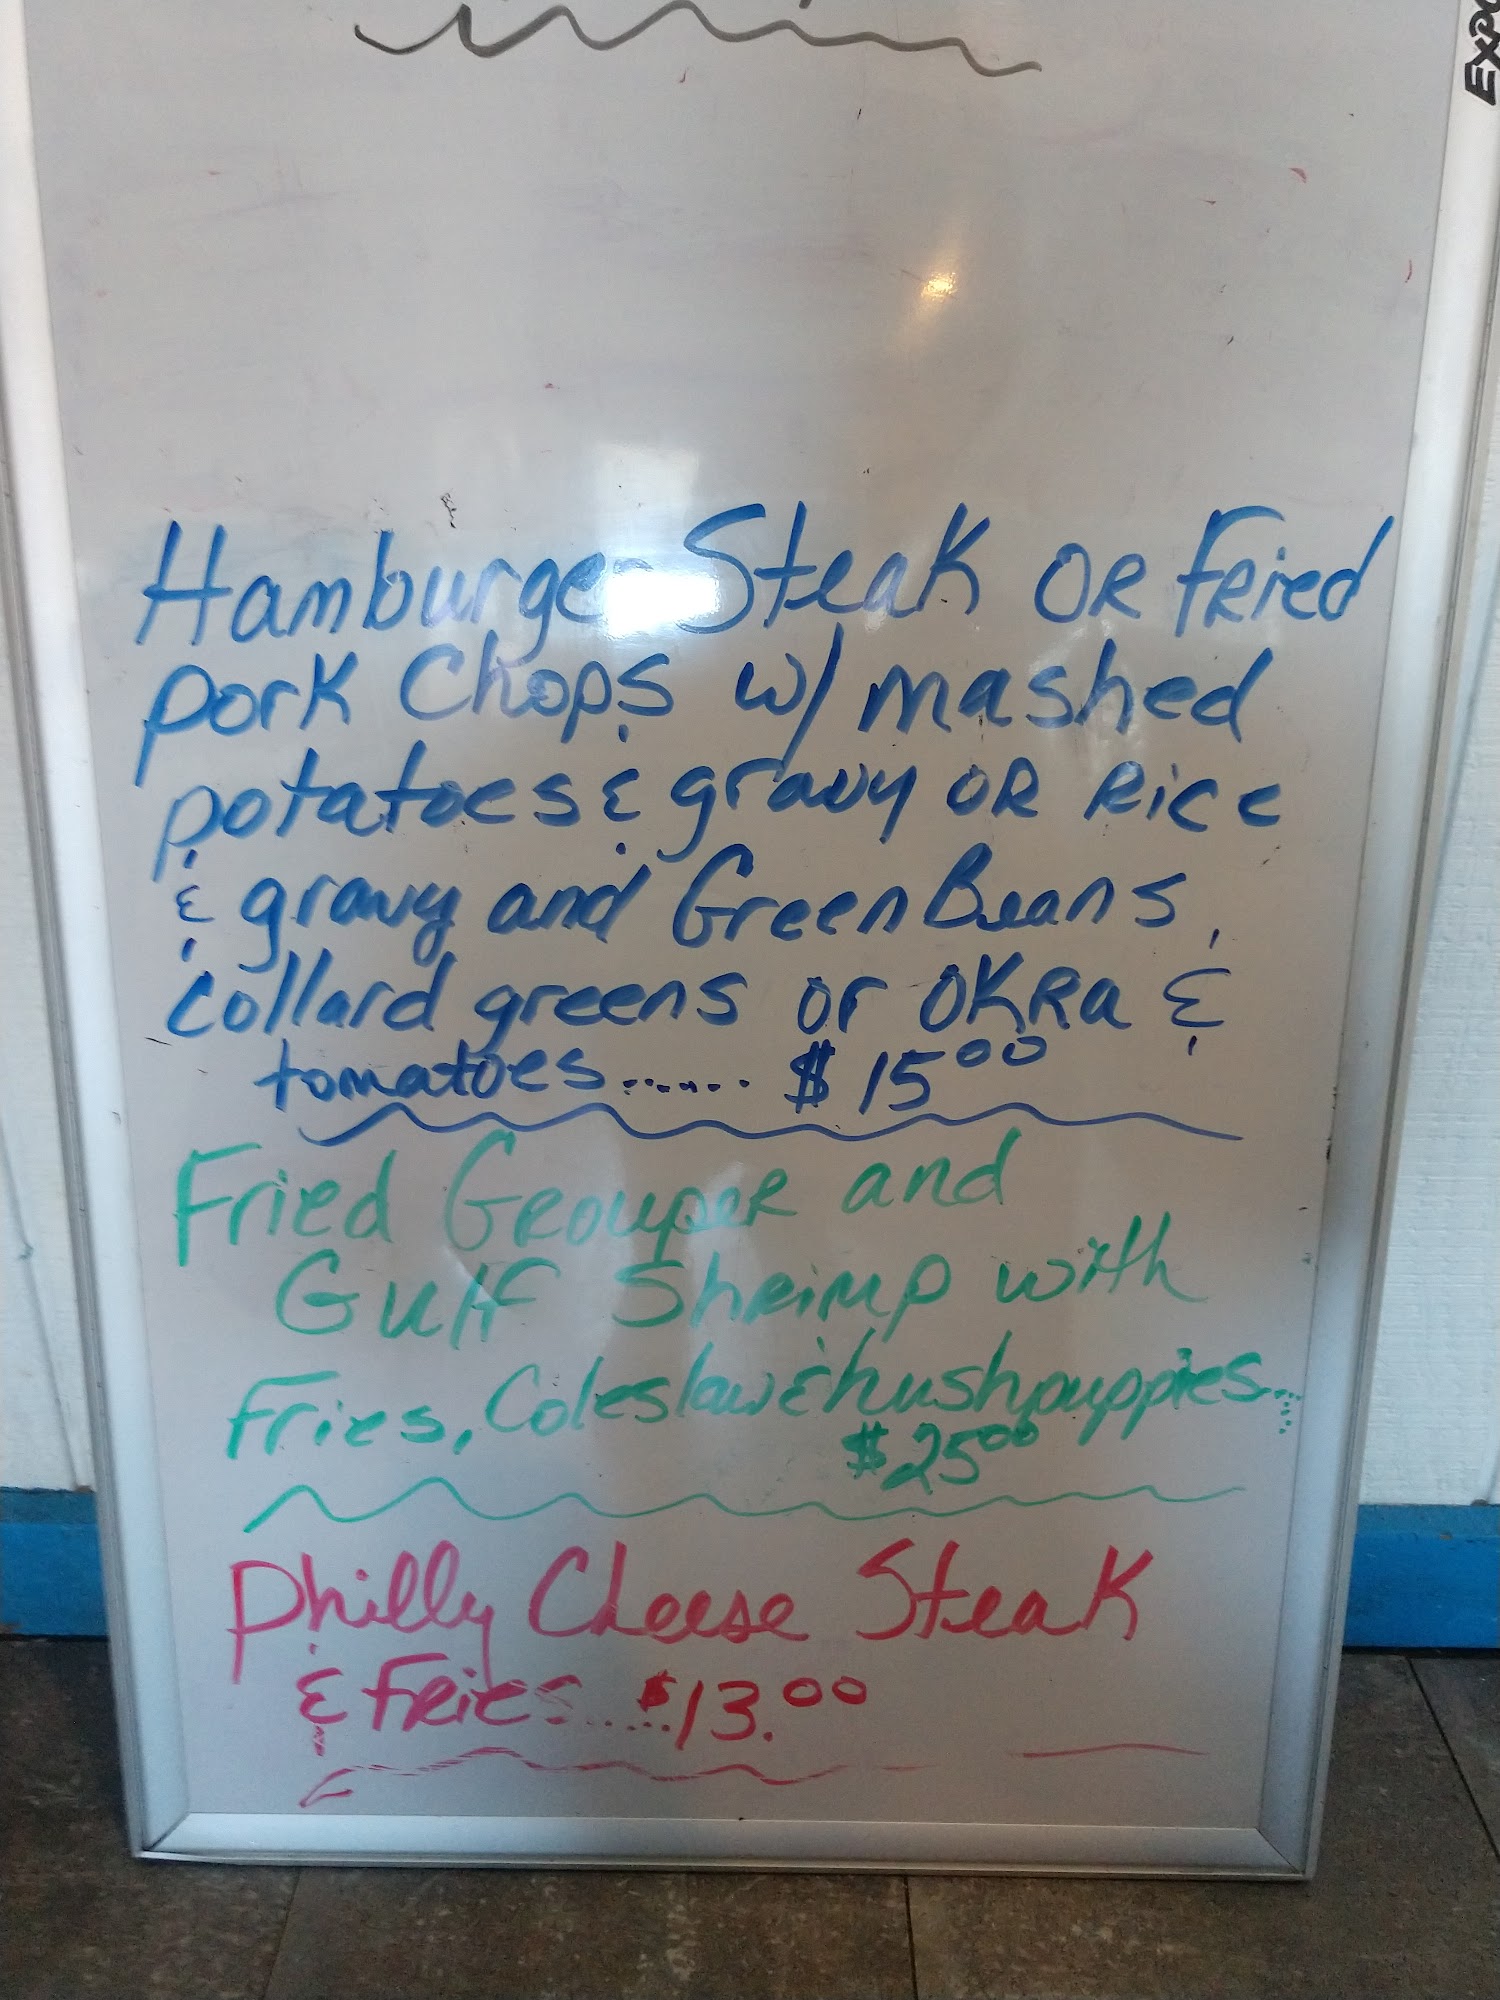 EXPO
Hamburger Steak OR Fried
pork Chops w/ mashed
potatoes & gravy OR Rice
& gravy and Green Beans,
collard greens or OKRa &
tomatoes...... $15.00
Fried Grouper and
Gulf Shrimp with
Fries, Coleslaw & hushpuppies...
$25.00
Philly Cheese Steak
& Fries...... $13.00